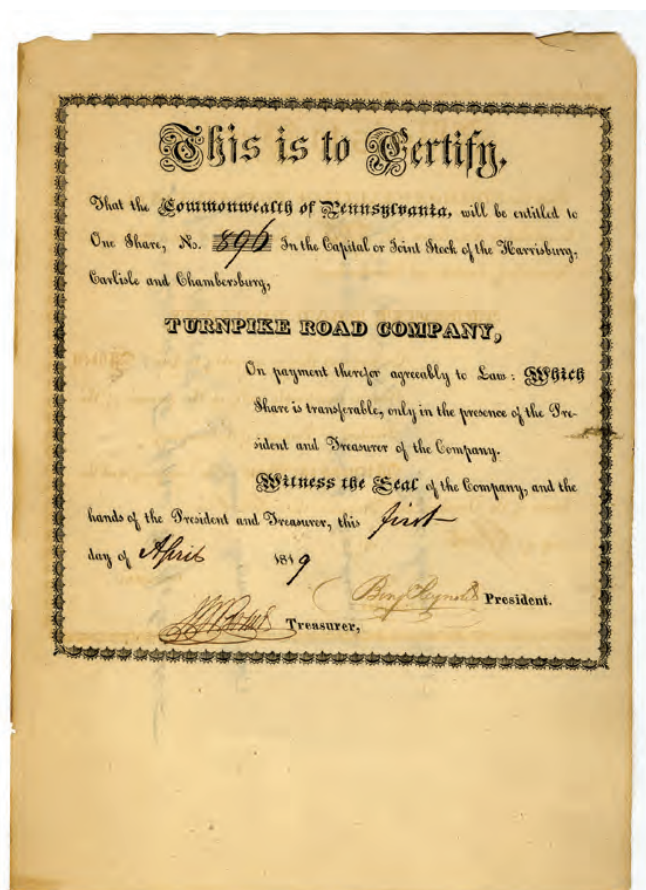 This is to Certify,
That the Commonwealth of Pennsylvania, will be entitled to
One Share, No. 896 In the Capital or Joint Stock of the Harrisburg,
Carlisle and Chambersburg,
TURNPIKE ROAD COMPANY,
On payment therefor agreeably to Law: Which
Share is transferable, only in the presence of the Pre-
sident and Treasurer of the Company.
Witness the Seal of the Company, and the
hands of the President and Treasurer, this first
day of April 1819
Benj Reynolds President.
Treasurer,